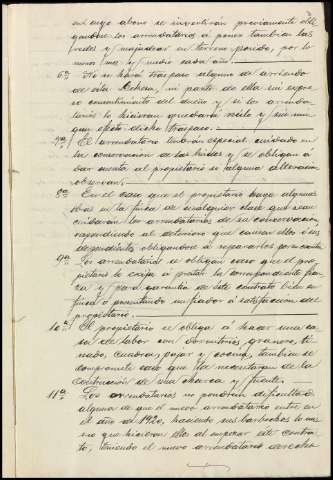 en cuyo abono se invertirán previamente obli
gandose los arrendatarios á poner tambien las
redes y majadear en terreno posido, por lo
menos mes y medio cada año.
6ª No se hará traspaso alguno de arriendo
de esta dehesa, ni parte de ella sin expre
so consentimiento del dueño y si los arrenda
tarios lo hicieran quedará nulo y sin nin
gun efecto dicho traspaso.
7ª El arrendatario tendrán especial cuidado en
la conservacion de las lindes y se obligan á
dar cuenta al propietario si alguna alteracion
observan.
8ª En el caso que el propietario haga algunas
obras en la finca de cualquier clase que sean
cuidarán los arrendatarios de su conservacion,
respondiendo al deterioro que causen ellos ó sus
dependientes obligandose á repararlos por su cuenta
9ª Los arrendatarios se obligan caso que el pro
pietario lo exija á prestar la correspondiente fian
za y para garantia de este contrato bien en
finca ó presentando un fiador á satisfaccion del
propietario.
10ª El propietario se obliga á hacer una ca
sa de labor con dormitorios, granero, ti
nado, cuadra, pajar y cocina, tambien se
compromete caso que la necesitaran de la
construccion de una charca y fuente.
11ª Los arrendatarios no pondran dificultad
alguna de que el nuevo arrendatario entre en
el año de 1920, haciendo sus barbechos lo mis
mo que hicieran ellos al empezar este contra
to, teniendo el nuevo arrendatario derecho